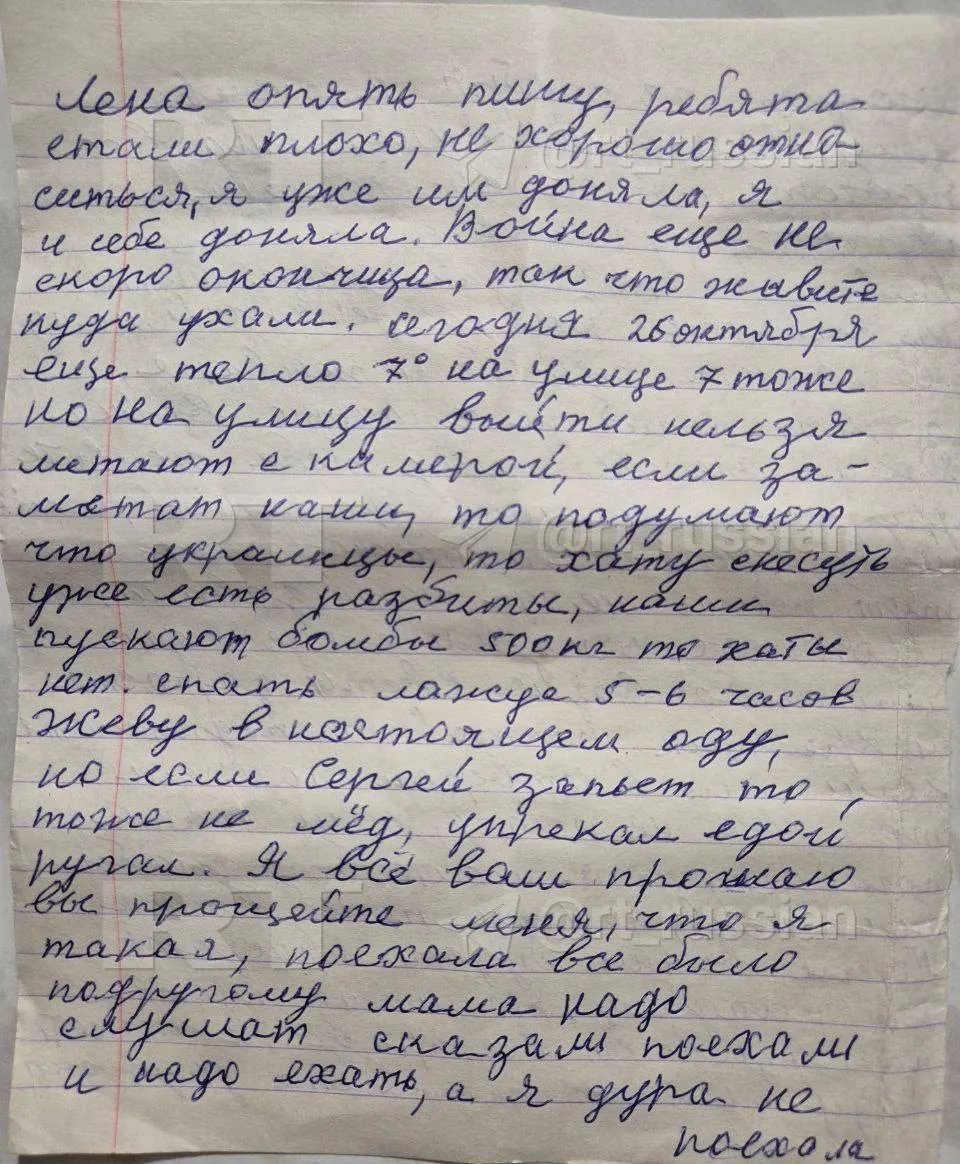 Лена опять пишу, ребята
стали плохо, не хорошо отно-
ситься, я уже им доняла, я
и себе доняла. Война еще не
скоро окончица, так что живите
куда ухали. сегодня 26 октября
еще тепло 7° на улице 7 тоже
но на улицу выйти нельзя
метают с камерой, если за-
метат наши, то подумают
что украинцы, то хату снесуть
уже есть разбиты, наши
пускают бомбы 500 кг то хаты
нет. спать 5-6 часов
Жеву в настоящем аду,
но если Сергей запьет то,
тоже не мёд, упрекал едой
ругал. Я всё вам прощаю
вы прощейте меня, что я
такая, поехала все было
подругому мама надо
слушат сказали поехали
и надо ехать, а я дура не
поехала
RT @rt_russian
RT @rt_russian
RT @rt_russian